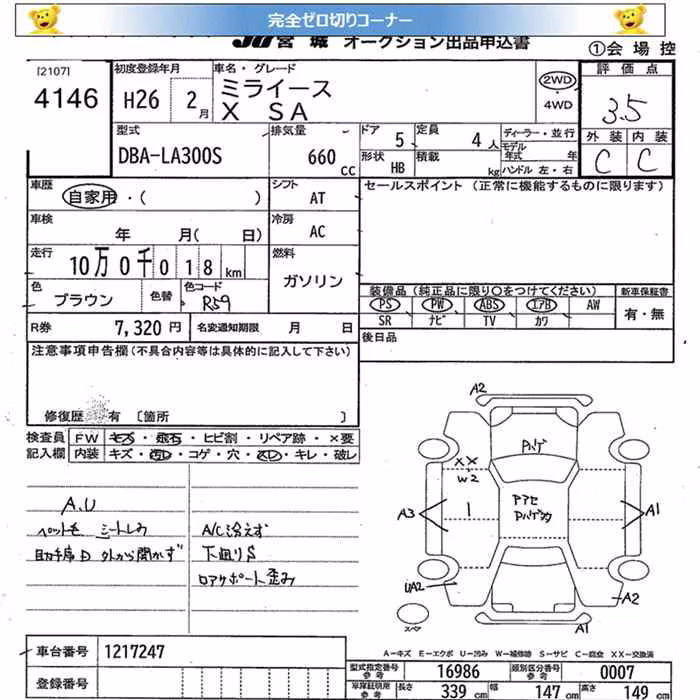 完全ゼロ切りコーナー
JU宮城 オークション出品申込書
①会場控
[2107]
4146
初度登録年月
H26 2月
車名・グレード
ミライース
X SA
2WD
・4WD
評価点
3.5
外装 内装
C C
型式
DBA-LA300S
排気量
660 CC
ドア 5
形状 HB
定員 4人
積載 kg
ディーラー・並行
モデル年式 年
ハンドル 左・右
車歴
自家用・( )
シフト
AT
セールスポイント(正常に機能するものに限ります)
車検
年 月( 日)
冷房
AC
走行
10万0千018km
燃料
ガソリン
色
ブラウン
色替
色コード
R59
装備品(純正品に限り〇をつけてください)
新車保証書
PS PW ABS エアB AW
SR ナビ TV カワ
有・無
R券 7,320円
名変通知期限 月 日
後日品
注意事項申告欄(不具合内容等は具体的に記入して下さい)
修復歴 有 [箇所 ]
検査員記入欄
FW キズ・飛石・ヒビ割・リペア跡・×要
内装 キズ・汚レ・コゲ・穴・スレ・キレ・破レ
A.U
ペット毛 シートしみ
助手席D 外から開かず
A/C冷えず
下廻りS
ロアサポート歪み
A2
Pハゲ
XX
W2
A3
Pアセ
Pハゲ
A1
UA2
A2
A1
スペア
A-キズ E-エクボ U-凹み W-補修跡 S-サビ C-腐食 XX-交換済
車台番号 1217247
登録番号
型式指定番号 参考 16986
類別区分番号 参考 0007
車庫証明用 参考 長さ 339cm 幅 147cm 高さ 149cm